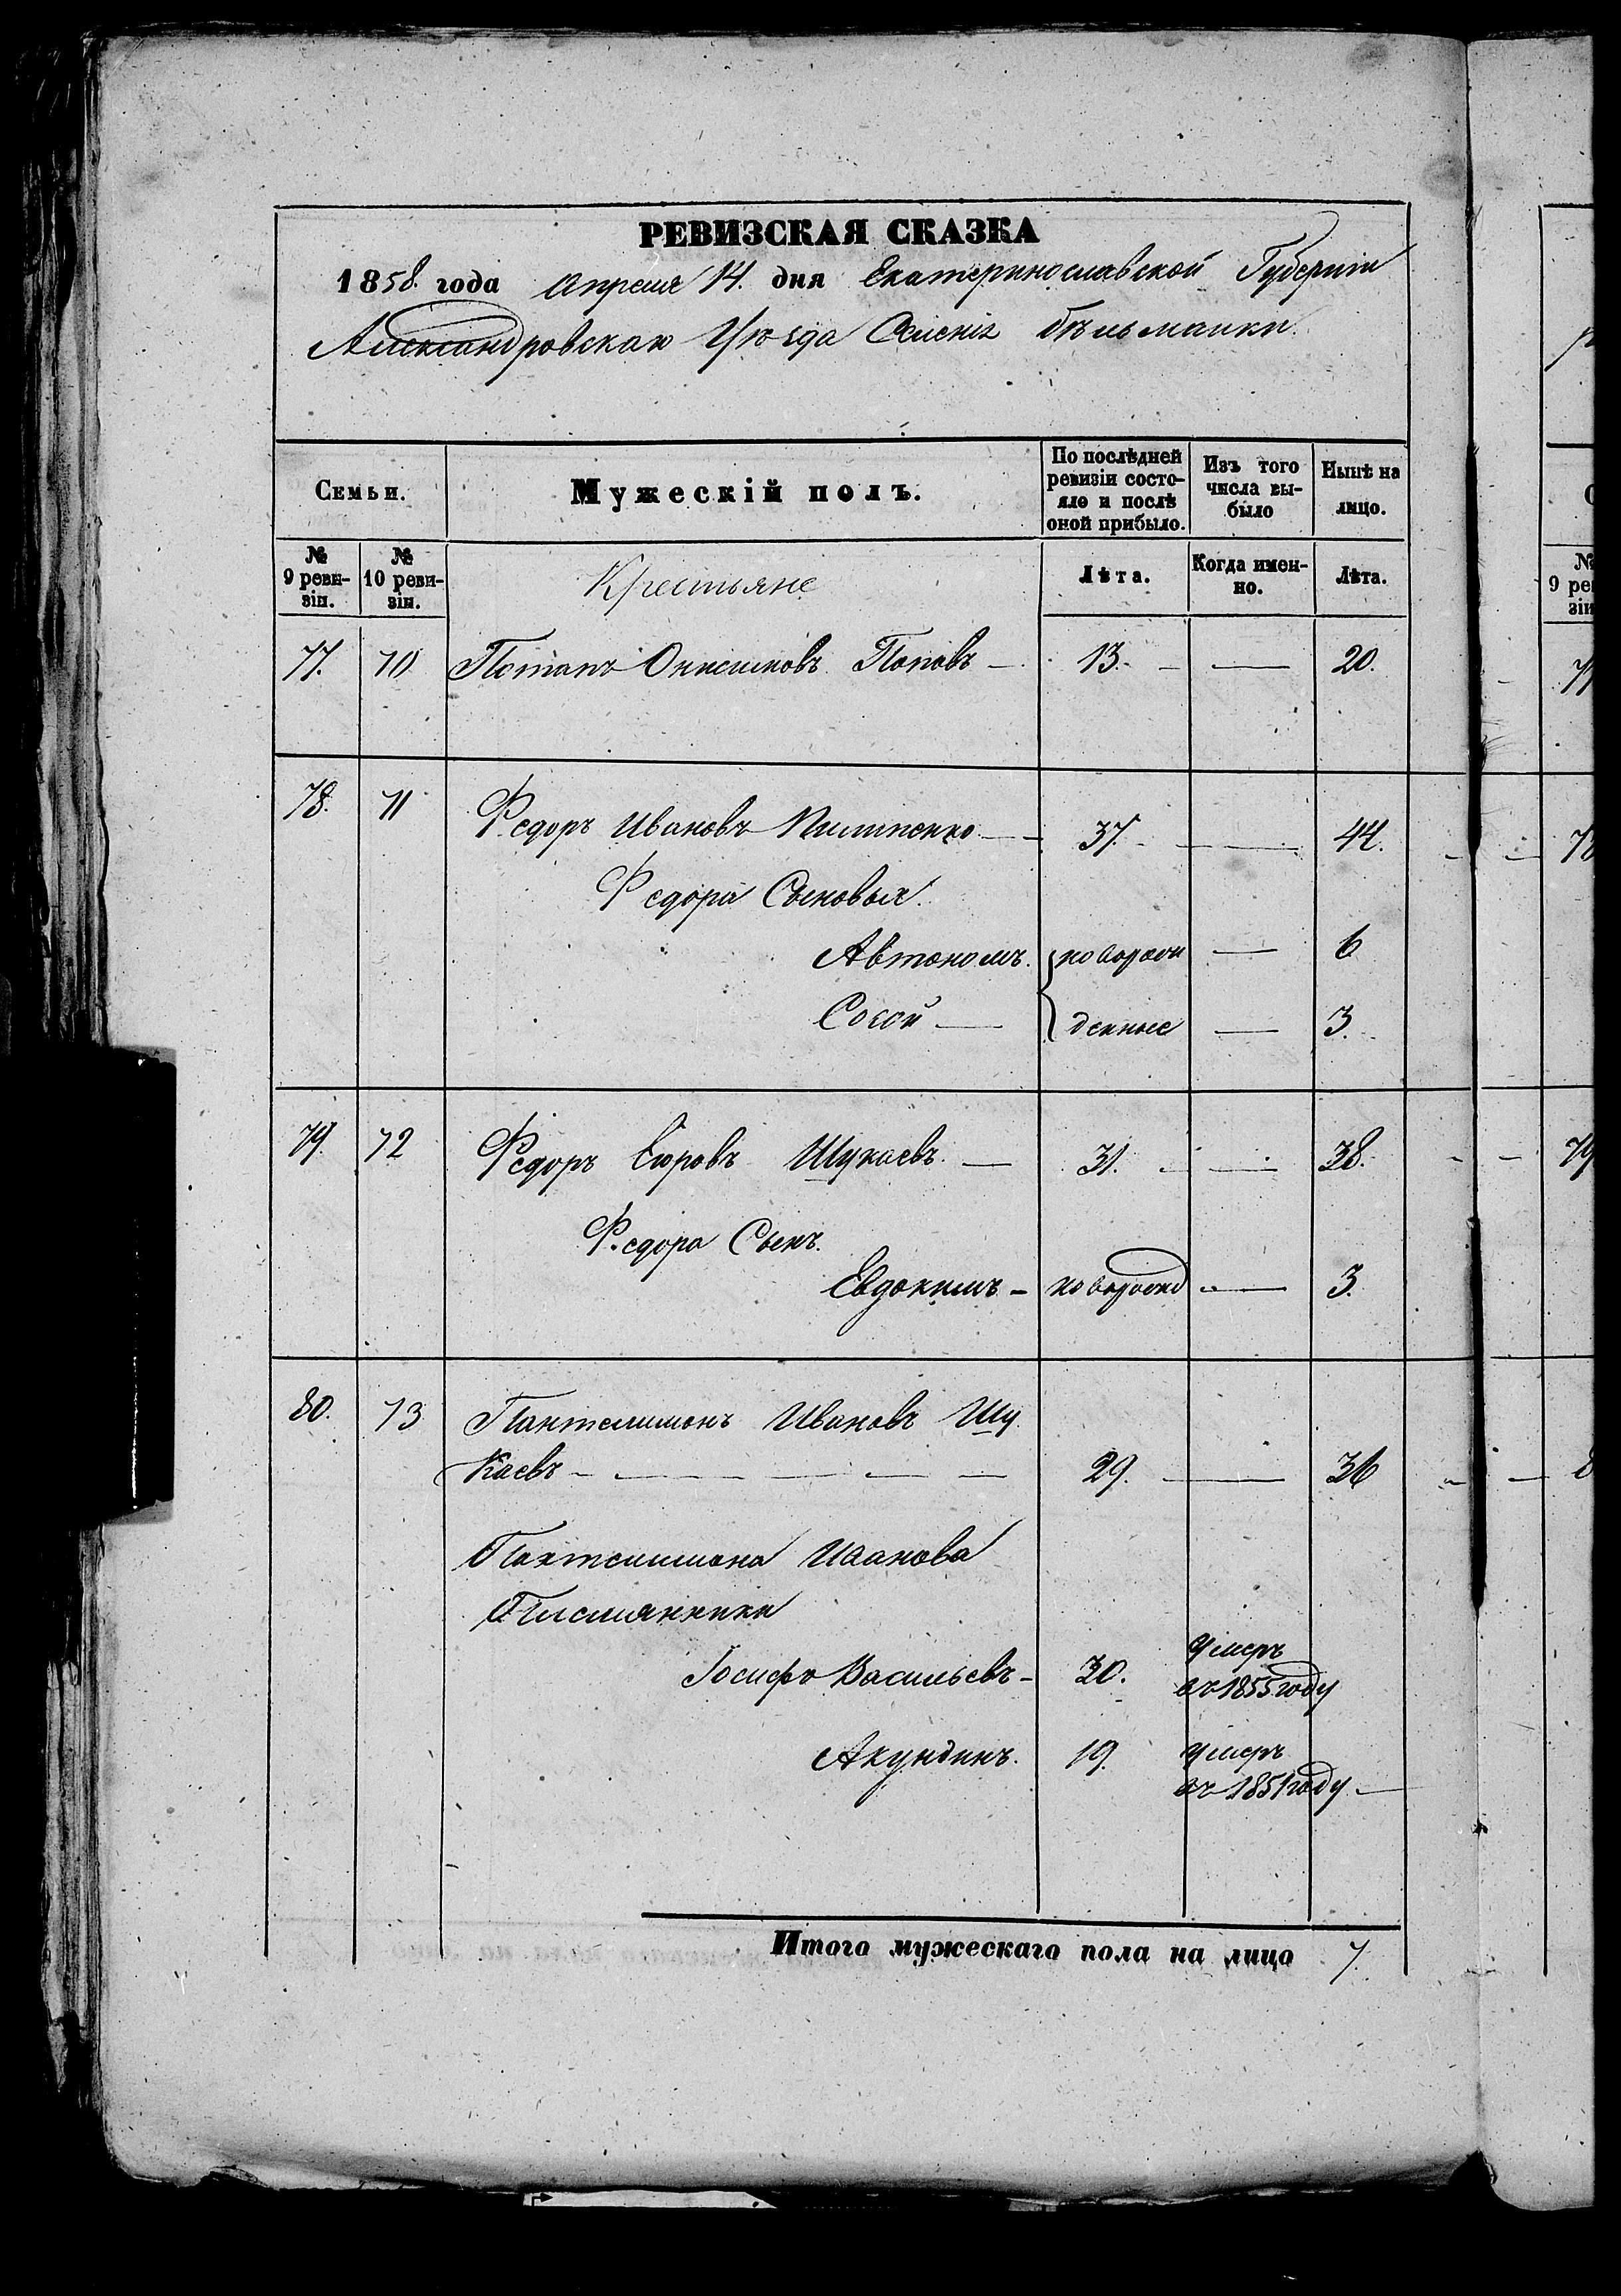 РЕВИЗСКАЯ СКАЗКА
1858. года Апреля 14. дня Екатеринославской Губерніи
Александровскаго Уѣзда Селенія Бѣльманки.
Семьи.
Мужескій полъ.
По послѣдней ревизіи состояло и послѣ оной прибыло.
Изъ того числа выбыло
Нынѣ на лицо.
№ 9 ревизіи.
№ 10 ревизіи.
Крестьяне
Лѣта.
Когда именно.
Лѣта.
77. 70 Потапъ Онисимовъ Поповъ — 13. — 20.
78. 71 Федоръ Ивановъ Пилипенко — 37. — 44.
Федора Сыновья.
Автономъ. новорож — 6
Созой — денные — 3.
79. 72 Федоръ Шукаевъ. — 31. — 38.
Федора Сынъ.
Евдокимъ — наворожд — 3.
80. 73 Пантелимонъ Ивановъ Шу
Каевъ — 29. — 36
Пантелимона Иванова
Племянники
Іосифъ Васильевъ — 30. Умеръ
въ 1855 году
Акундинъ. 19. умеръ
въ 1851 году —
Итого мужескаго пола на лицо 7.
№ 9 ре
зі
77
78
79
8